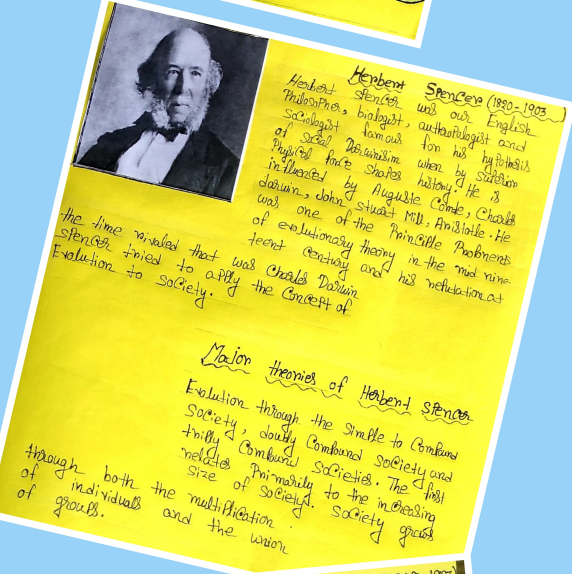 Herbert Spencer (1820-1903)
Herbert Spencer was our English
Philosopher, biologist, anthropologist and
sociologist famous for his hypothesis
of social Darwinism when by superior
Physical force shapes history. He is
influenced by Auguste Comte, Charles
darwin, John stuart Mill, Aristotle. He
was one of the Principle Proponents
of evolutionary theory in the mid nine
teent century and his reputation at
the time rivaled that was Charles Darwin
Spencer tried to apply the Concept of
Evolution to society.
Major theories of Herbert Spencer
Evolution through the simple to Compound
society, doubly Compound society and
trilly Compound societies. The first
relates Primarily to the increasing
size of society. society grows
through both the multiplication
of individuals and the union
of groups.